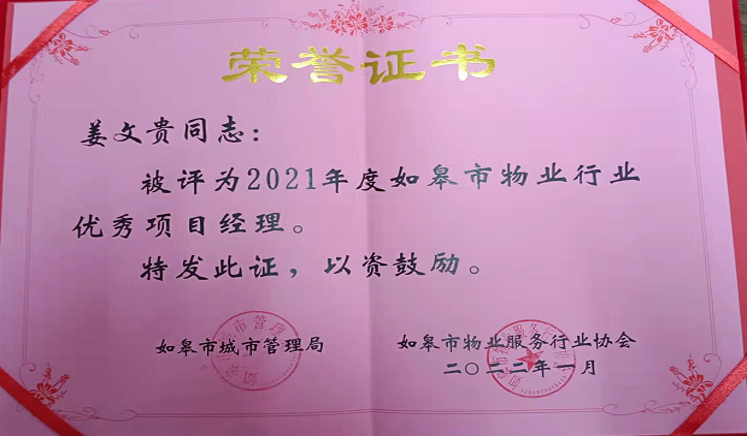 荣誉证书
姜文贵同志：
被评为2021年度如皋市物业行业
优秀项目经理。
特发此证，以资鼓励。
如皋市城市管理局
如皋市物业服务行业协会
二〇二二年一月